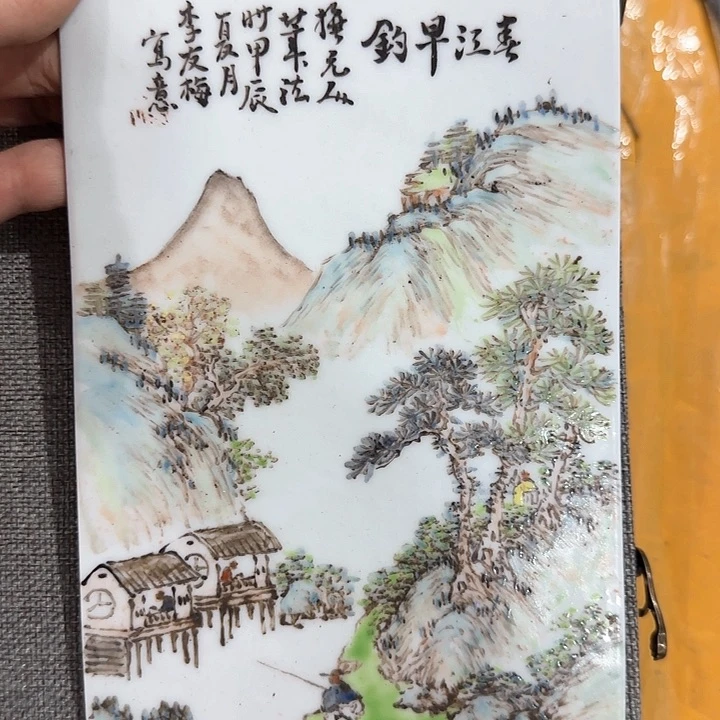 春江早釣
元人
筆法
時甲辰
夏月
李友梅
寫意